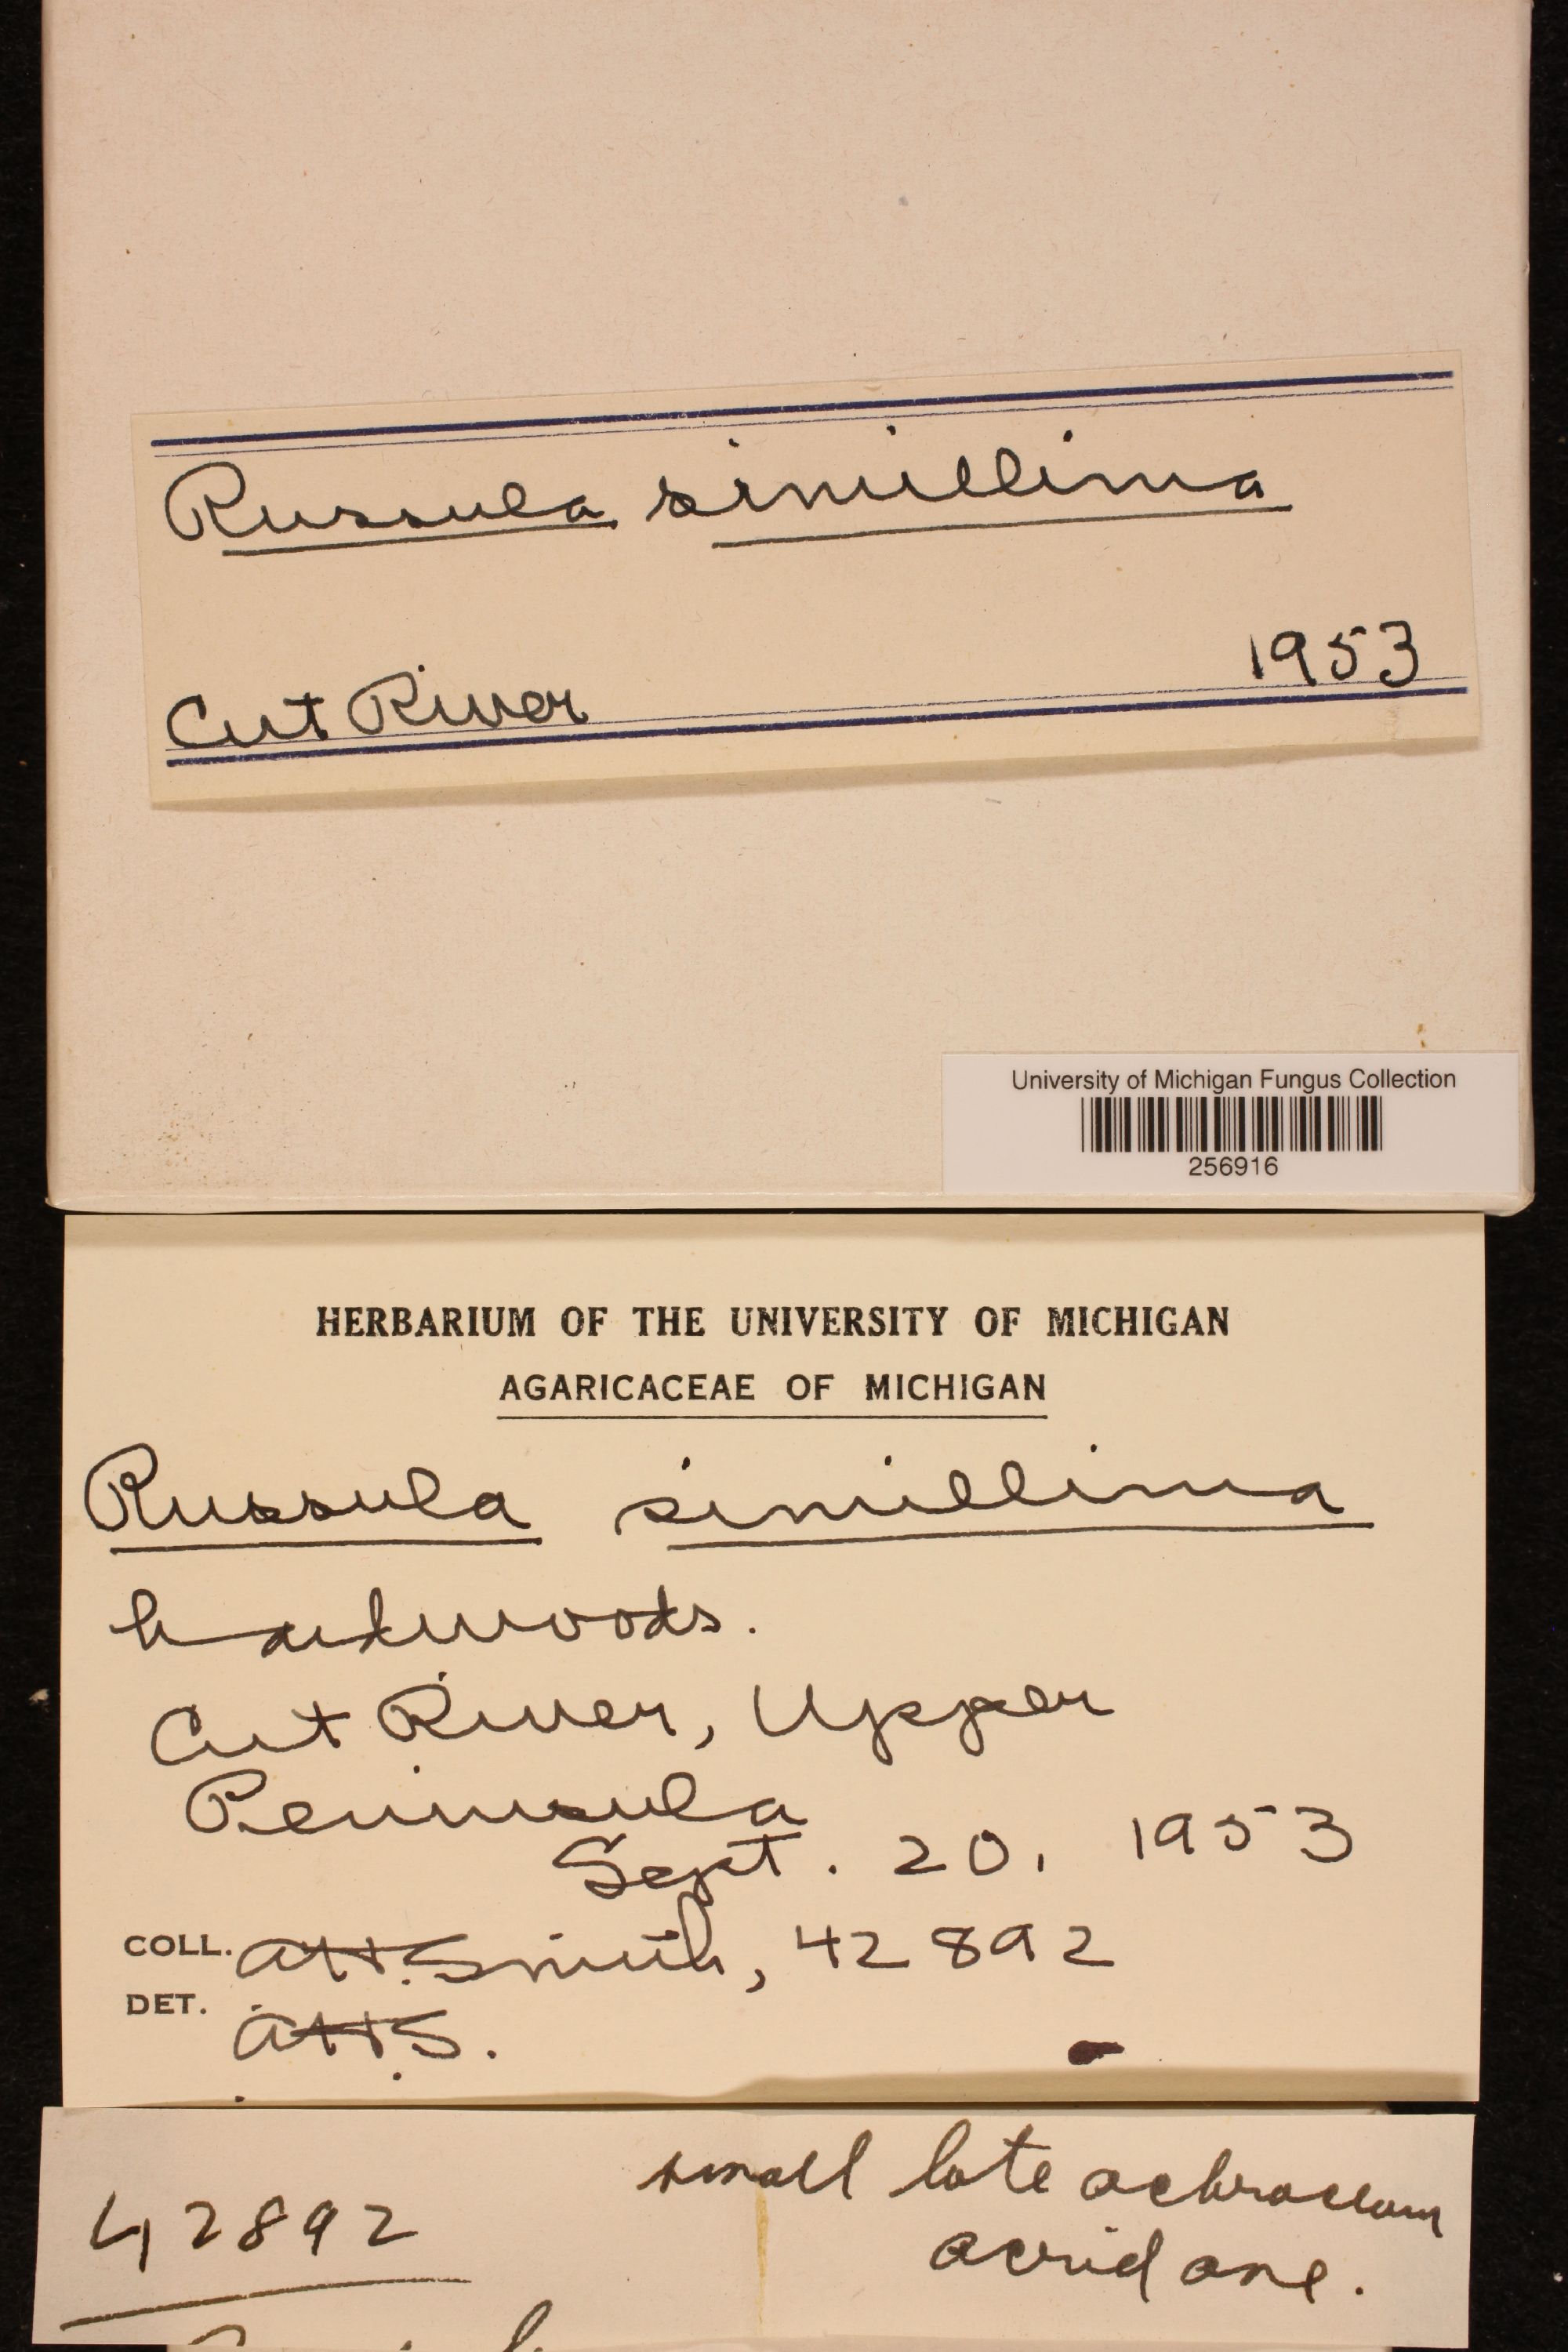 Russula simillima
Cut River 1953
University of Michigan Fungus Collection
256916
HERBARIUM OF THE UNIVERSITY OF MICHIGAN
AGARICACEAE OF MICHIGAN
Russula simillima
hardwoods.
Cut River, Upper
Peninsula
Sept. 20, 1953
COLL. AH.Smith, 42892
DET. AHS.
small late ochraceous
42892
acrid one.